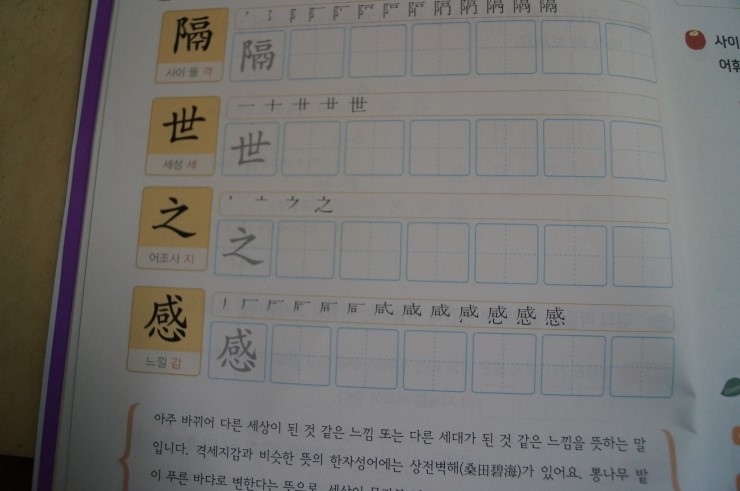 隔
사이 뜰 격
隔
世
세상 세
一 十 卄 丗 世
世
之
어조사 지
之
之
感
느낄 감
感
感
아주 바뀌어 다른 세상이 된 것 같은 느낌 또는 다른 세대가 된 것 같은 느낌을 뜻하는 말
입니다. 격세지감과 비슷한 뜻의 한자성어에는 상전벽해(桑田碧海)가 있어요. 뽕나무 밭
이 푸른 바다로 변한다는 뜻으로, 세상이
사이
어휘